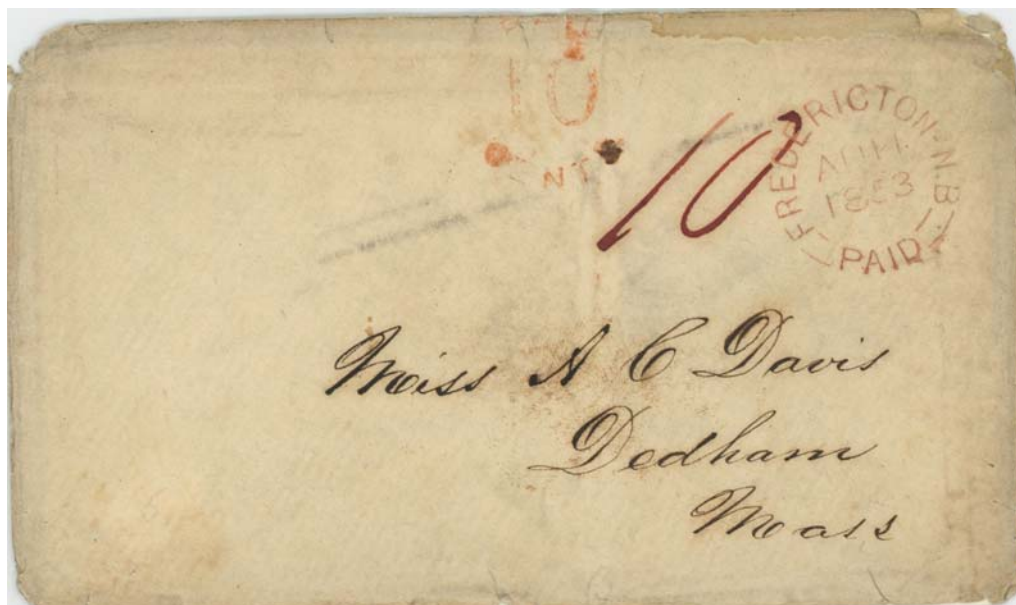 10
NT
10
FREDERICTON·N.B.
1853
PAID
Miss A C Davis
Dedham
Mass